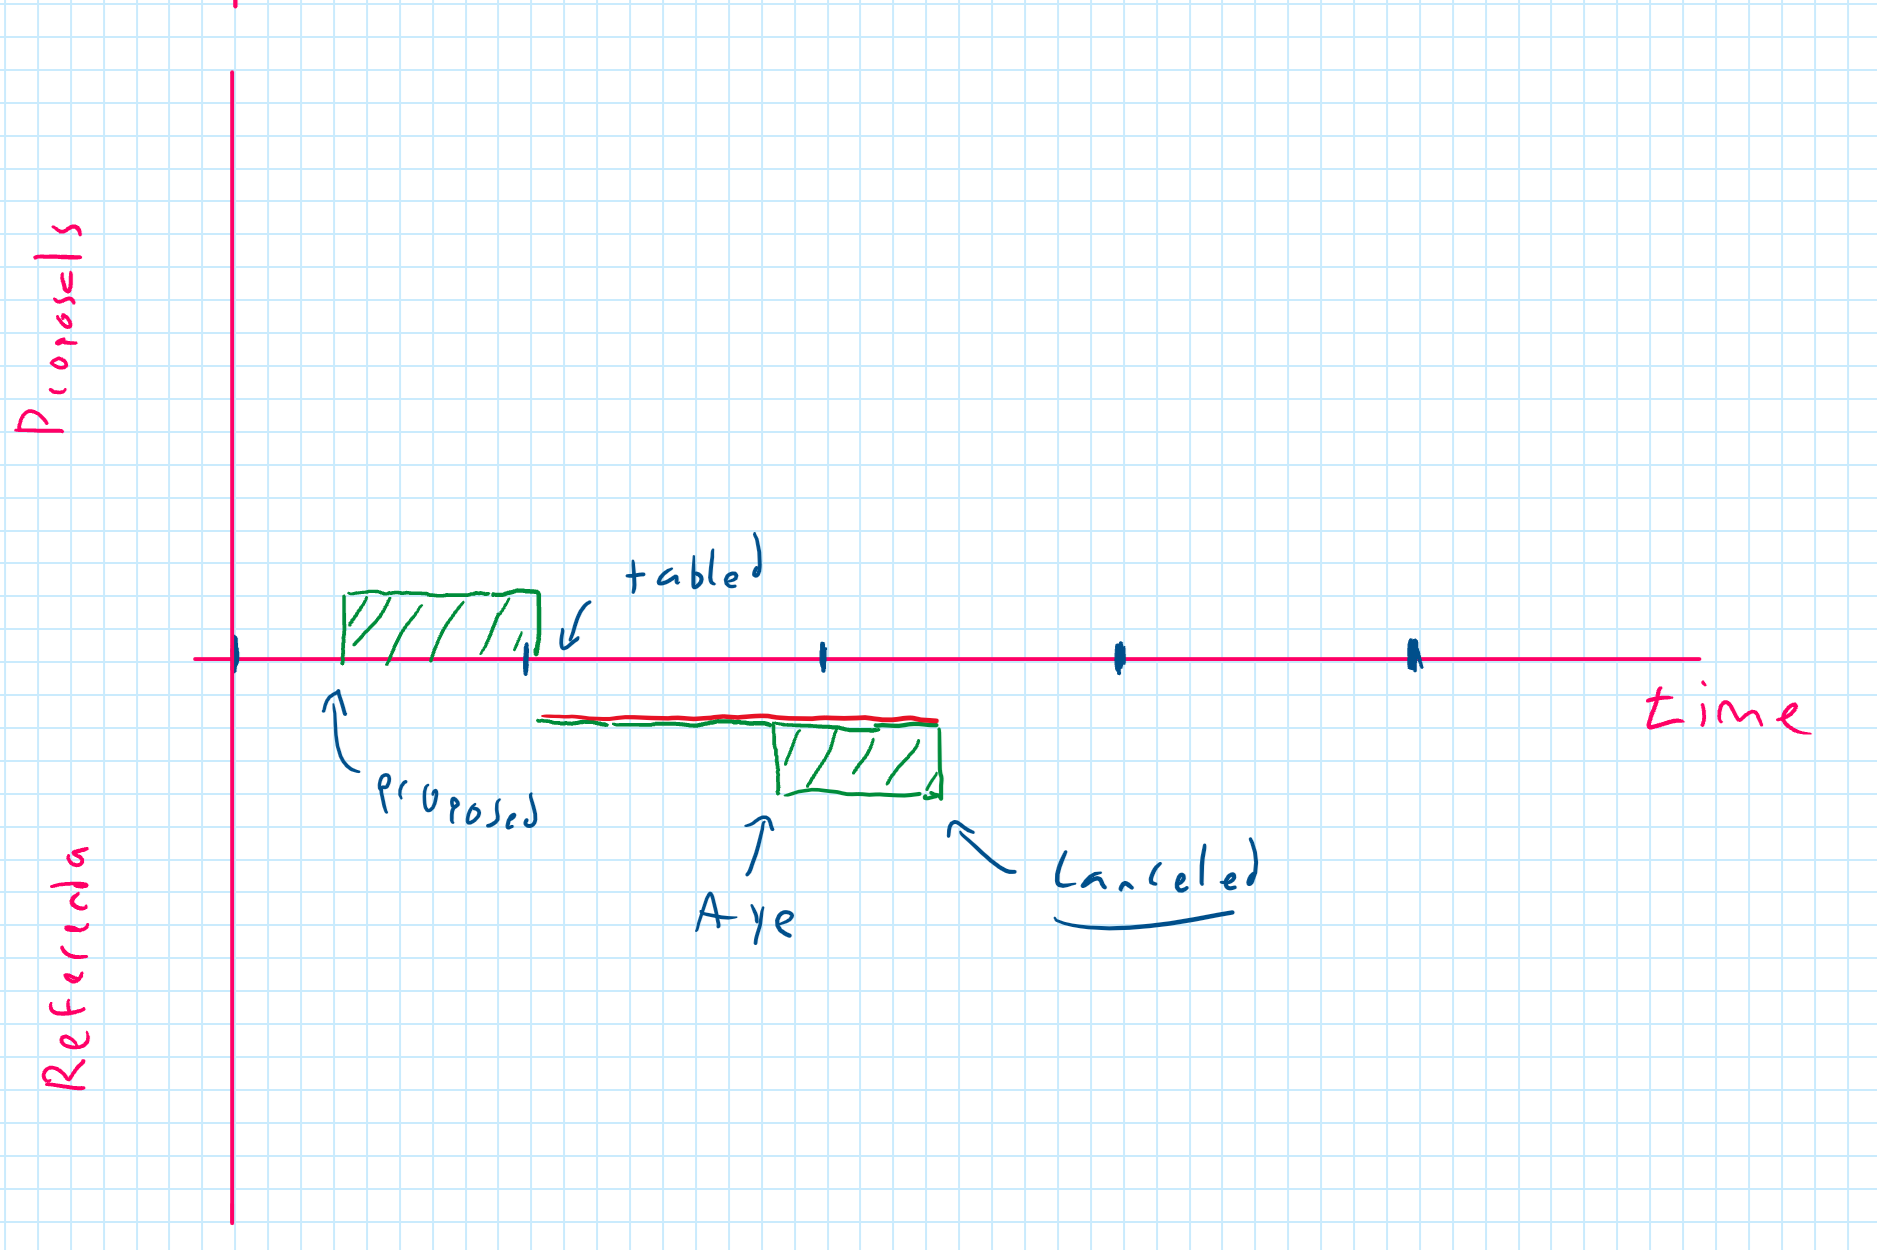 Proposels
tabled
time
proposed
Aye
Canceled
Referenda